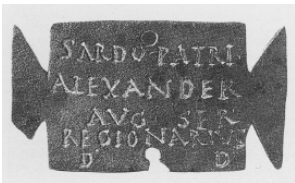 SARDO PATRI
ALEXANDER
AVG SER
REGIONARIVS
D D